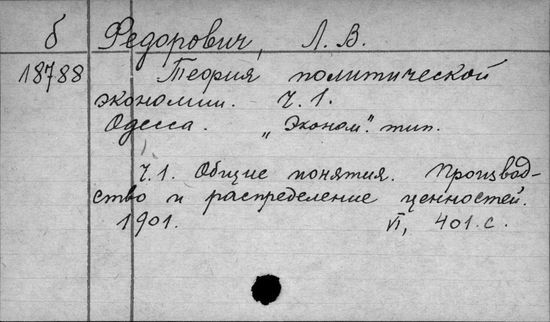 б Федорович, Л. В.
18788 Теория политической
экономии. Ч. 1.
Одесса. „Эконом." тип.
Ч. 1. Общие понятия. Производ-
ство и распределение ценностей.
1901. VI, 401 с.